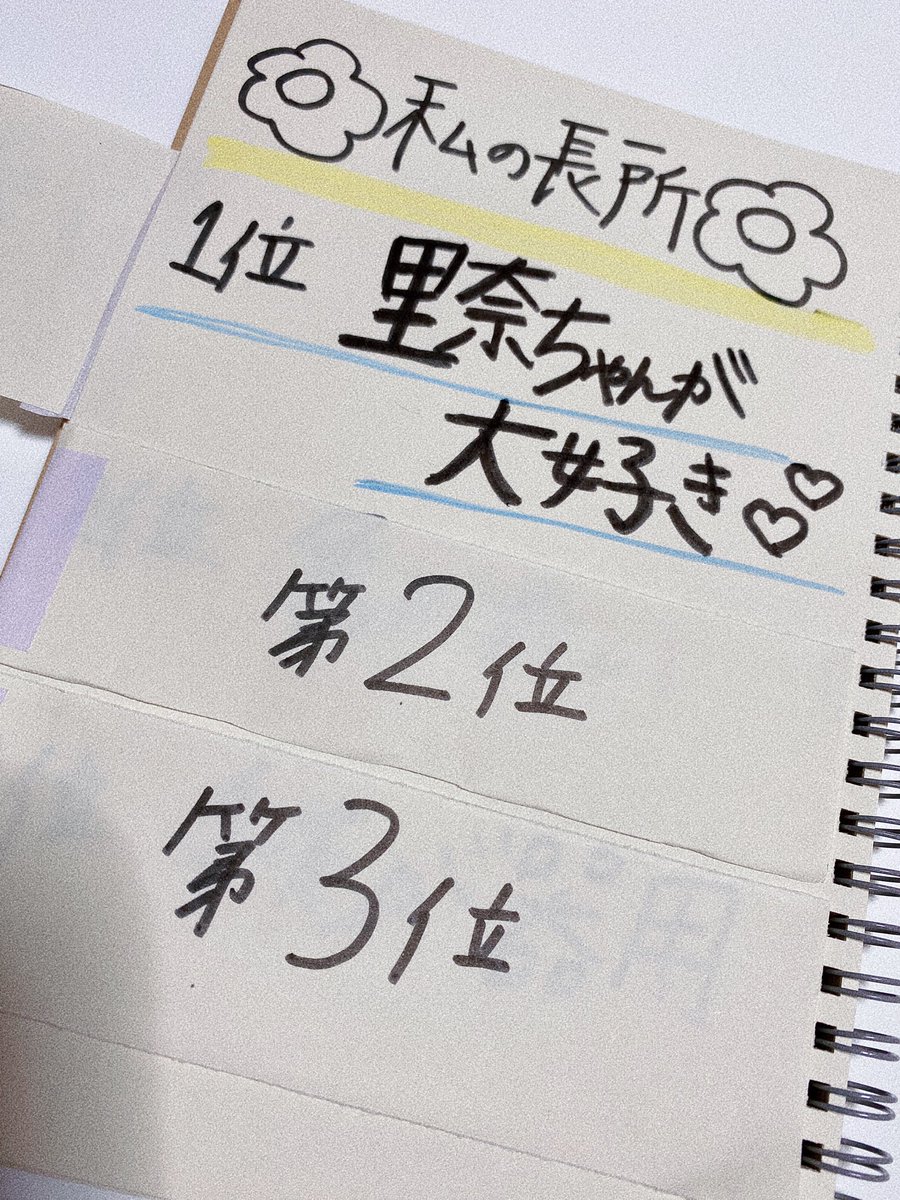 私の長所
1位 里奈ちゃんが
大好き
第2位
第3位